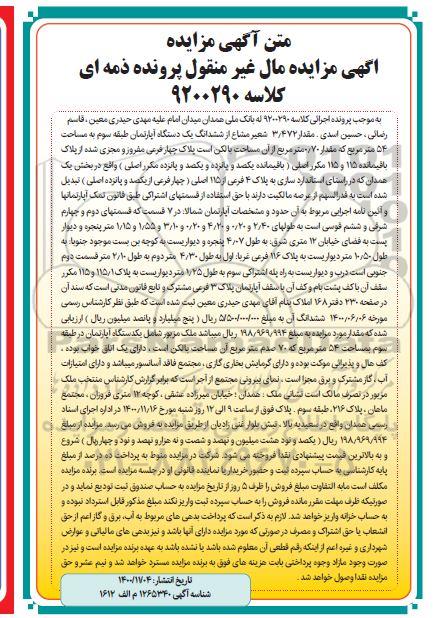 متن آگهی مزایده
اگهی مزایده مال غیر منقول پرونده ذمه ای
کلاسه ۹۲۰۰۲۹۰
به موجب پرونده اجرائی کلاسه ۹۲۰۰۲۹۰ له بانک ملی همدان میدان امام علیه مهدی حیدری معین ، قاسم
رضائی ، حسین اسدی . مقدار ۳/۴۷۲ شعیر مشاع از ششدانگ یک دستگاه آپارتمان طبقه سوم به مساحت
۵۴ متر مربع که مقدار ۰/۷۰ متر مربع از آن مساحت بالکن است پلاک چهار فرعی مفروز و مجزی شده از پلاک
باقیمانده ۱۱۵ و ۱۱۵ مکرر اصلی ( باقیمانده یکصد و پانزده و یکصد و پانزده مکرر اصلی ) واقع در بخش یک
همدان که در راستای استاندارد سازی به پلاک ۴ فرعی از ۱۱۵ اصلی ( چهار فرعی از یکصد و پانزده اصلی ) تبدیل
شده است به قدرالسهم از عرصه مالکیت دارند با حق استفاده از قسمتهای اشتراکی طبق قانون تملک آپارتمانها
و آئین نامه اجرایی مربوط به آن حدود و مشخصات آپارتمان شمالا: در ۷ قسمت که قسمتهای دوم و چهارم
شرقی و ششم قوسی است به طولهای ۲/۴۰ و ۰/۲۰ و ۴/۲۰ و ۰/۱۰ و ۳/۱۰ و ۱/۵۵ و ۱/۱۵ متر پنجره و دیوار
پست به فضای خیابان ۱۲ متری شرق: به طول ۴/۰۷ پنجره و دیواریست به کوچه بن بست موجود جنوبا: به
طول ۱۰/۵۰ متر دیواریست به پلاک ۱۱۶ فرعی غربا: اول به طول ۴/۳۰ متر دوم به طول ۲/۱۰ متر قسمت دوم
جنوبی است درب و دیواریست به راه پله اشتراکی سوم به طول ۱/۲۵ متر دیواریست به پلاک ۱۱۵/۱ و ۱۱۵ مکرر
سقف آن با کف پشت بام و کف آن با سقف آپارتمان پلاک ۳ فرعی مشترک و تابع قانون مدنی است که سند آن
در صفحه ۲۳۰ دفتر ۱۶۸ املاک بنام آقای مهدی حیدری معین ثبت شده است که طبق نظر کارشناس رسمی
مورخه ۱۴۰۰/۰۶/۰۶ ششدانگ آن به مبلغ ۵/۵۰۰/۰۰۰/۰۰۰ ریال ( پنج میلیارد و پانصد میلیون ریال ) ارزیابی
شده که مقدار مورد مزایده به مبلغ ۱۹۸/۹۶۹/۹۹۴ ریال میباشد ملک مزبور شامل یکدستگاه آپارتمان در طبقه
سوم بمساحت ۵۴ متر مربع که ۷۰ صدم متر مربع آن مساحت بالکن است ، دارای یک اتاق خواب بوده ،
کف هال و پذیرائی موکت بوده و دارای گرمایش بخاری گازی ، مجتمع فاقد آسانسور میباشد و دارای امتیازات
آب ، گاز مشترک و برق مجزا است ، نمای بیرونی مجتمع از آجر است که برابر گزارش کارشناس منتخب ملک
مزبور در تصرف مالک است نشانی ملک : همدان ؛ خیابان میرزاده عشقی ، کوچه ۱۲ متری فروزان ، مجتمع
ماهان ، پلاک ۲۱۶، طبقه سوم . پلاک فوق از ساعت ۹ الی ۱۲ روز شنبه مورخ ۱۴۰۰/۱۱/۱۶ در اداره اجرای اسناد
رسمی همدان واقع در سعیدیه بالا ، نبش بلوار غنی زادیان از طریق مزایده به فروش می رسد. مزایده از مبلغ
۱۹۸/۹۶۹/۹۹۴ ریال ( یکصد و نود هشت میلیون و نهصد و شصت و نه هزار و نهصد و نود و چهار ریال ) شروع
و به بالاترین قیمت پیشنهادی نقدا فروخته می شود. شرکت در مزایده منوط به پرداخت ده درصد از مبلغ
پایه کارشناسی به حساب سپرده ثبت و حضور خریدار یا نماینده قانونی او در جلسه مزایده است. برنده مزایده
مکلف است مابه التفاوت مبلغ فروش را ظرف ۵ روز از تاریخ مزایده به حساب صندوق ثبت تودیع نماید و در
صورتیکه ظرف مهلت مقرر مانده فروش را به حساب سپرده ثبت واریز نکند مبلغ مذکور قابل استرداد نبوده و
به حساب خزانه واریز خواهد شد. لازم به ذکر است که پرداخت بدهی های مربوط به آب، برق و گاز اعم از حق
انشعاب یا حق اشتراک و مصرف در صورتی که مورد مزایده دارای آنها باشد و نیز بدهی های مالیاتی و عوارض
شهرداری و غیره اعم از اینکه رقم قطعی آن معلوم شده باشد یا نشده باشد به عهده برنده مزایده است و نیز در
صورت وجود مازاد وجوه پرداختی بابت هزینه های فوق به برنده مزایده مسترد خواهد شد و نیم عشر و حق
مزایده نقدا وصول خواهد شد .
تاریخ انتشار: ۱۴۰۰/۱۱/۰۴
شناسه آگهی ۱۲۶۵۳۴۰ م الف ۱۶۱۲